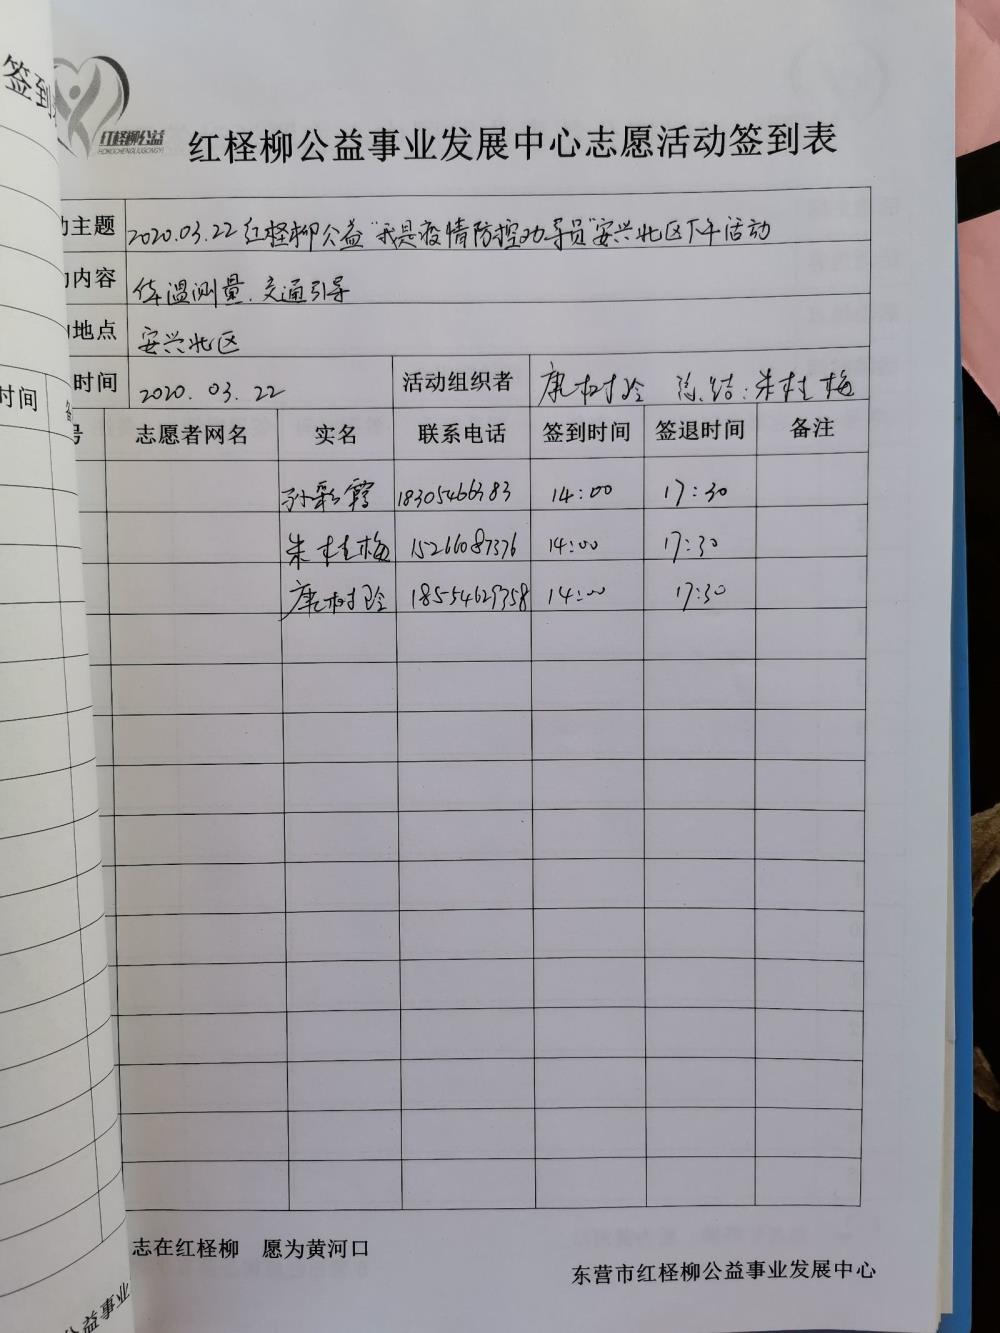 签到
红柽柳公益
HONGCHENGLIUGONGYI
红柽柳公益事业发展中心志愿活动签到表
主题 2020.03.22红柽柳公益"我是疫情防控劝导员"安兴北区下午活动
内容 体温测量、交通引导
地点 安兴北区
时间 2020.03.22 活动组织者 康树玲 总结:朱桂梅
时间 备
号 志愿者网名 实名 联系电话 签到时间 签退时间 备注
孙彩霞 18305466383 14:00 17:30
朱桂梅 15266087376 14:00 17:30
康树玲 18554629358 14:00 17:30
志在红柽柳 愿为黄河口
东营市红柽柳公益事业发展中心
公益事业